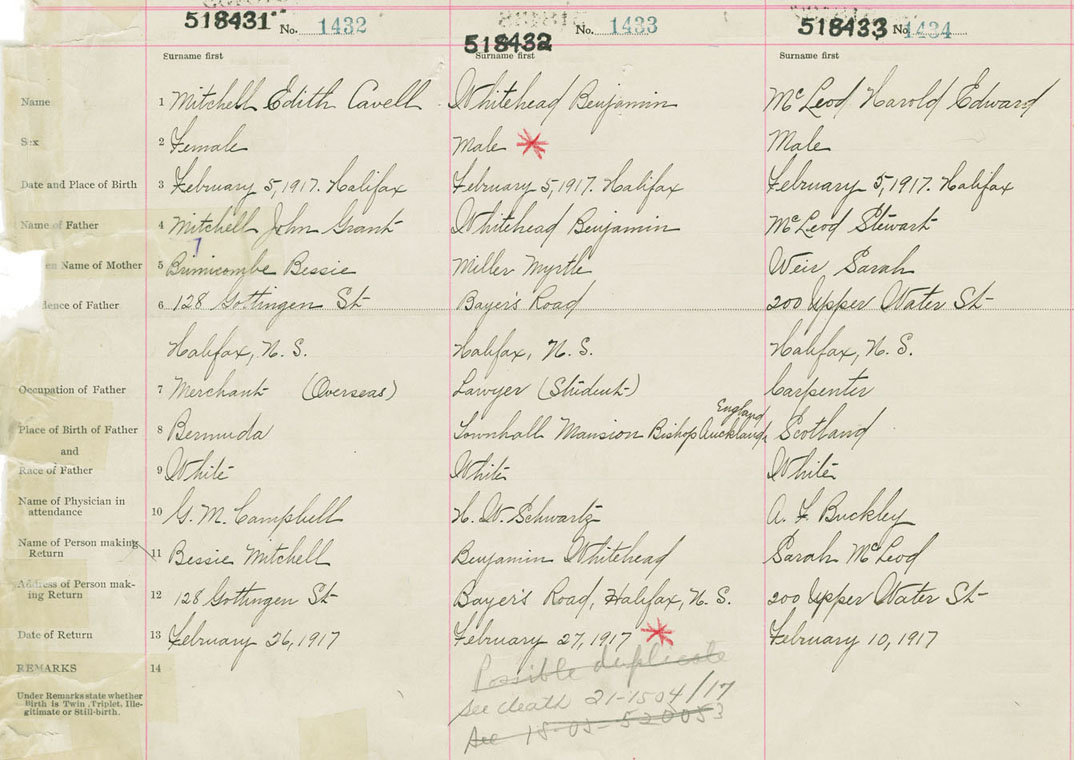 518431 No. 1432 518432 No. 1433 518433 No. 1434
Surname first Surname first Surname first
Name 1 Mitchell Edith Cavell Whitehead Benjamin McLeod Harold Edward
Sex 2 Female Male Male
Date and Place of Birth 3 February 5, 1917. Halifax February 5, 1917. Halifax February 5, 1917. Halifax
Name of Father 4 Mitchell John Grant Whitehead Benjamin McLeod Stewart
en Name of Mother 5 Brimicombe Bessie Miller Myrtle Weir Sarah
dence of Father 6 128 Gottingen St Bayer's Road 200 Upper Water St
Halifax, N.S. Halifax, N.S. Halifax, N.S.
Occupation of Father 7 Merchant (Overseas) Lawyer (Student) Carpenter
England
Place of Birth of Father 8 Bermuda Townhall Mansion Bishop Auckland, Scotland
and
Race of Father 9 White White White
Name of Physician in
attendance 10 G. M. Campbell H. W. Schwartz A. F. Buckley
Name of Person making
Return 11 Bessie Mitchell Benjamin Whitehead Sarah McLeod
Address of Person mak-
ing Return 12 128 Gottingen St Bayer's Road, Halifax, N.S. 200 Upper Water St
Date of Return 13 February 26, 1917 February 27, 1917 February 10, 1917
REMARKS 14 Possible duplicate
Under Remarks state whether
Birth is Twin, Triplet, Ille-
gitimate or Still-birth.
See death 21-1504/17
See 18-05-